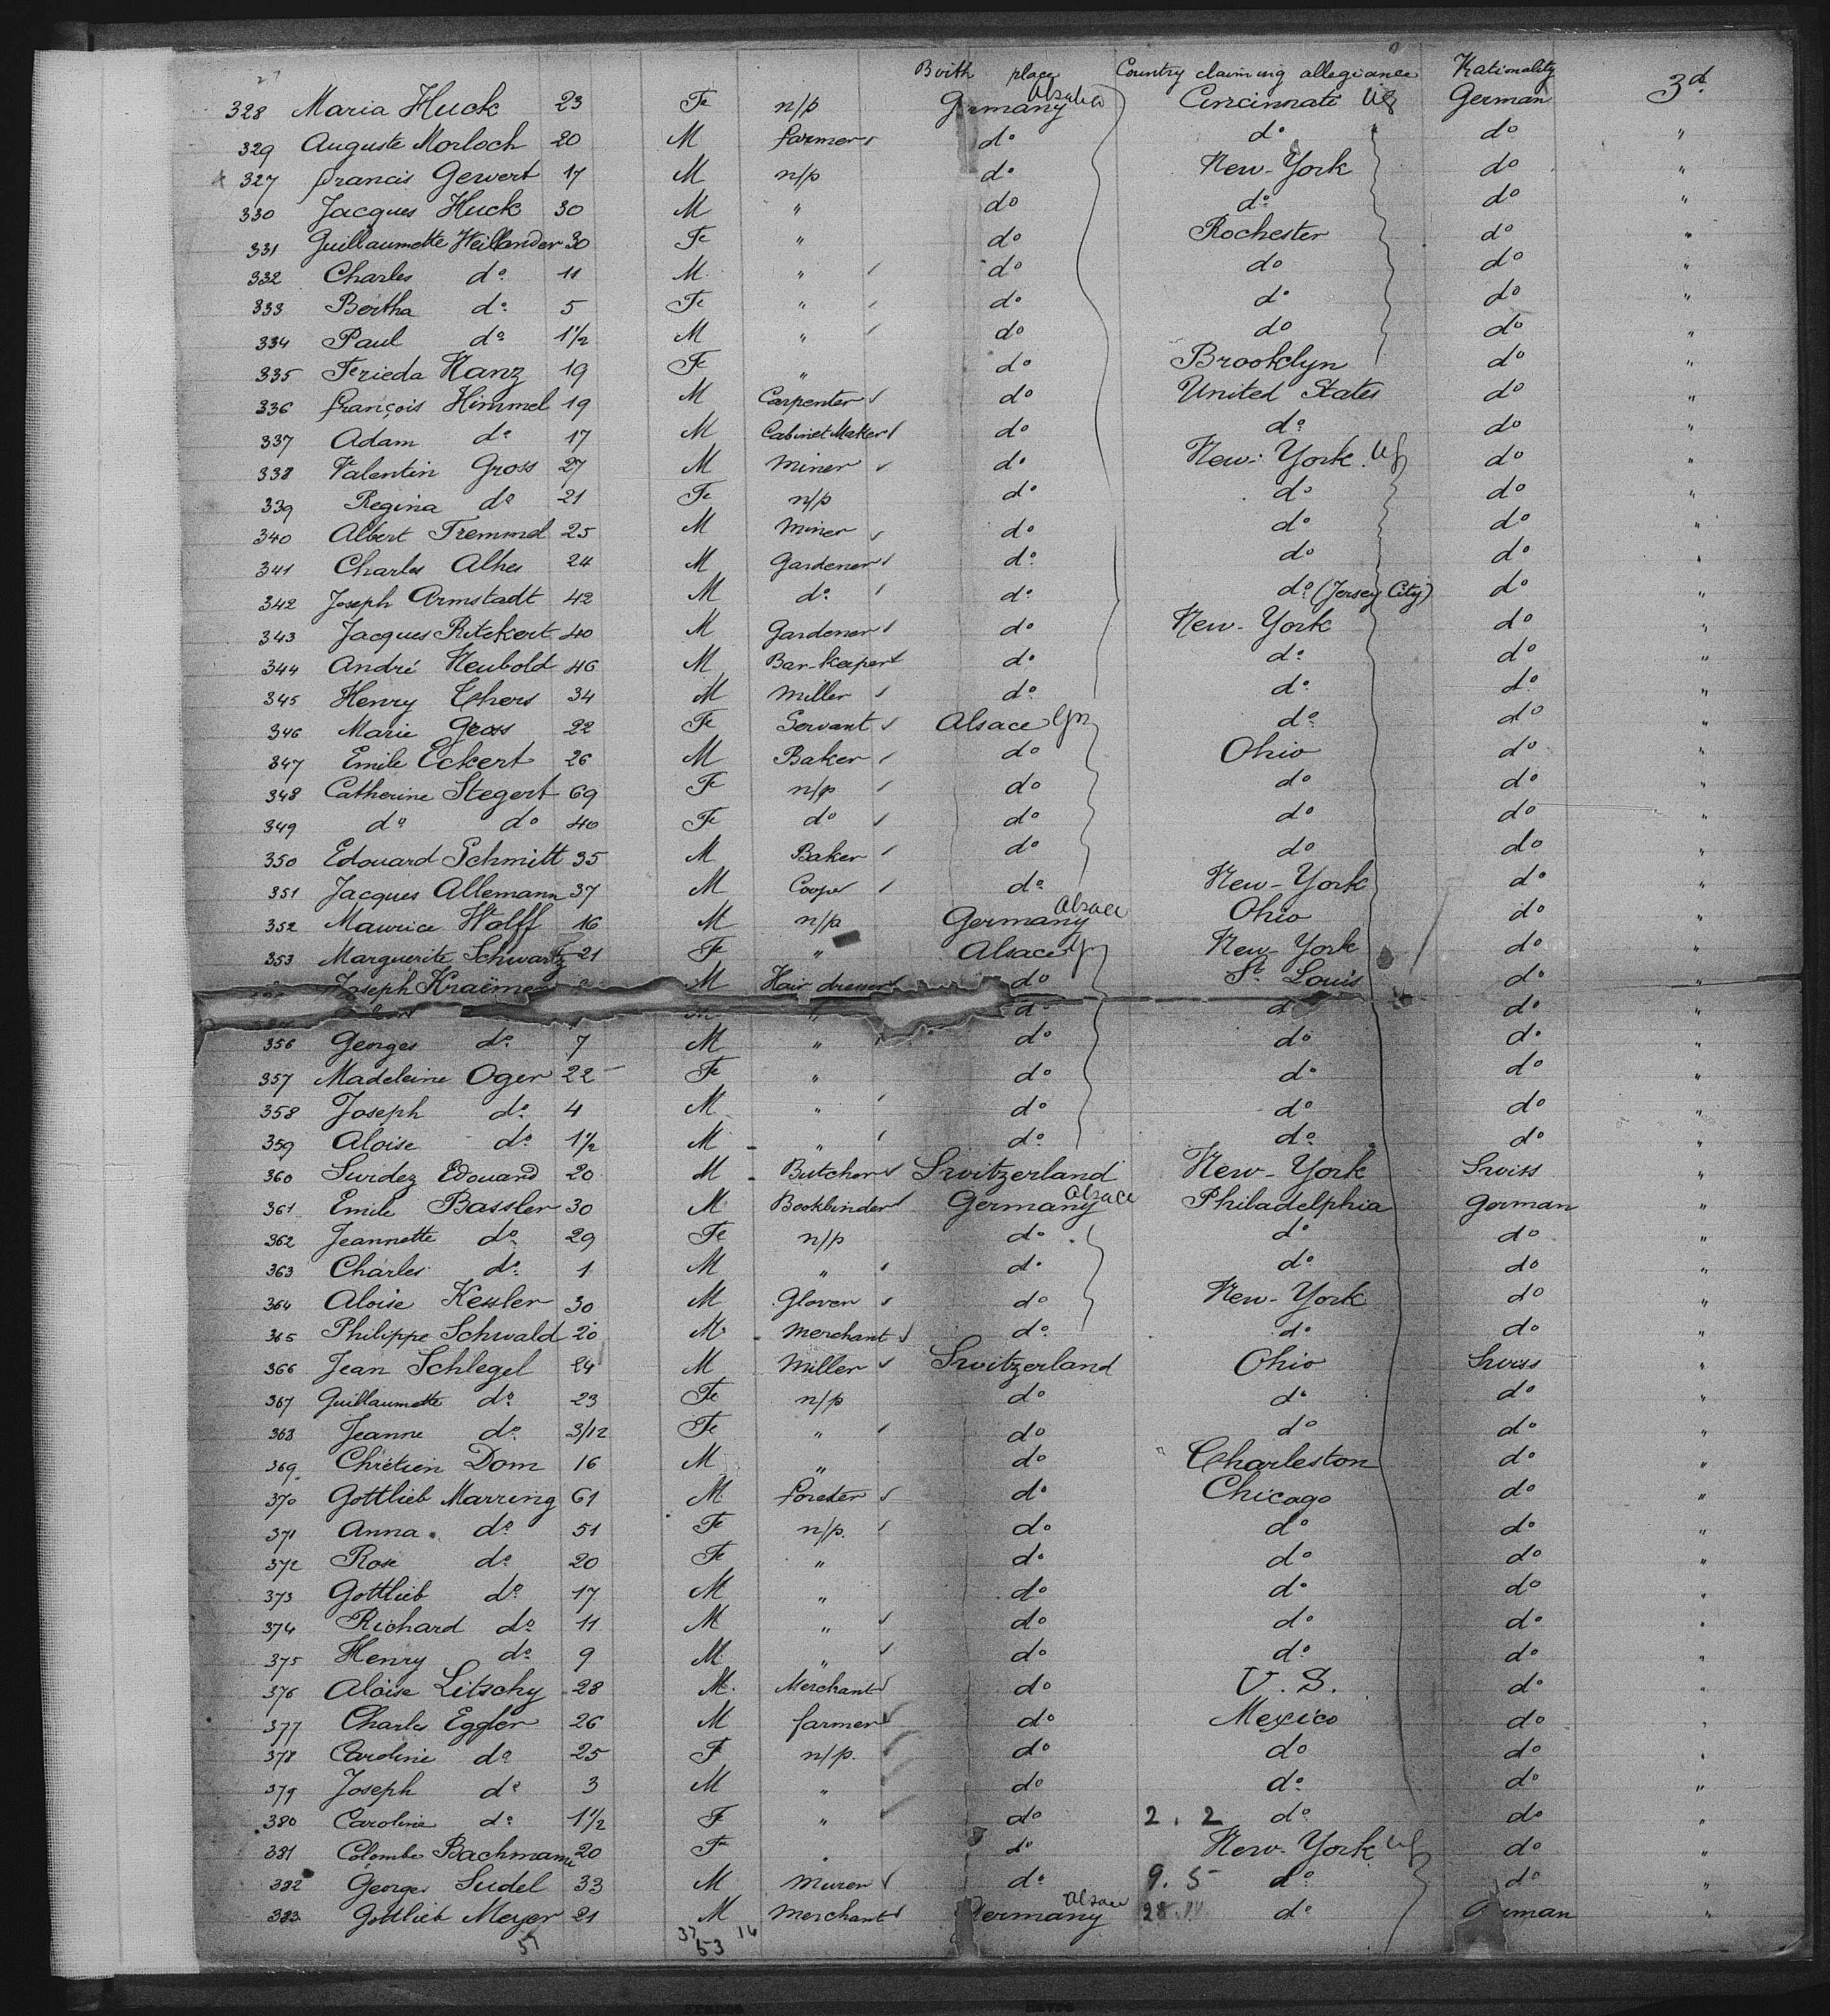 Birth place Country claiming allegiance Nationality 3d.
328 Maria Huck 23 Fe n/p Germany Alsace Cincinnati US German
329 Auguste Morloch 20 M farmer do do do "
327 francis Gewert 17 M n/p do New-York do "
330 Jacques Huck 30 M " do do do "
331 Guillaumette Heillander 30 Fe " do Rochester do "
332 Charles do 11 M " do do do "
333 Bertha do 5 Fe " do do do "
334 Paul do 1 1/2 M " do do do "
335 Frieda Hanz 19 Fe " do Brooklyn do "
336 françois Himmel 19 M Carpenter do United States do "
337 Adam do 17 M Cabinet Maker do do do "
338 Valentin Gross 27 M Miner do New-York US do "
339 Regina do 21 Fe n/p do do do "
340 Albert Tremmel 25 M Miner do do do "
341 Charles Alhes 24 M Gardener do do do "
342 Joseph Armstadt 42 M do do do (Jersey City) do "
343 Jacques Ritekert 40 M Gardener do New-York do "
344 André Neubold 46 M Bar-Keeper do do do "
345 Henry Ehers 34 M Miller do do do "
346 Marie Gross 22 Fe Servant Alsace Gn do do "
347 Emile Eckert 26 M Baker do Ohio do "
348 Catherine Stegert 69 Fe n/p do do do "
349 do do 40 Fe do do do do "
350 Edouard Schmitt 35 M Baker do do do "
351 Jacques Allemann 37 M Cooper do New-York do "
352 Maurice Wolff 16 M n/p Germany Alsace Ohio do "
353 Marguerite Schwartz 21 Fe " Alsace New-York do "
Joseph Kraëmer M Hair dresser do St. Louis do "
" do do do "
356 Georges do 7 M " do do do "
357 Madeleine Oger 22 Fe " do do do "
358 Joseph do 4 M " do do do "
359 Aloise do 1 1/2 M " do do do "
360 Surdez Edouard 20 M Butcher Switzerland New-York Swiss "
361 Emile Bassler 30 M Bookbinder Germany Alsace Philadelphia german "
362 Jeannette do 29 Fe n/p do do do "
363 Charles do 1 M " do do do "
364 Aloise Kessler 30 M Glover do New-York do "
365 Philippe Schwald 20 M Merchant do do do "
366 Jean Schlegel 24 M Miller Switzerland Ohio Swiss "
367 Guillaumette do 23 Fe n/p do do do "
368 Jeanne do 3/12 Fe " do do do "
369 Chrétien Dom 16 M " do Charleston do "
370 Gottlieb Marring 61 M forester do Chicago do "
371 Anna do 51 Fe n/p. do do do "
372 Rose do 20 Fe " do do do "
373 Gottlieb do 17 M " do do do "
374 Richard do 11 M " do do do "
375 Henry do 9 M " do do do "
376 Aloise Litschy 28 M. Merchant do U. S. do "
377 Charles Eggler 26 M farmer do Mexico do "
378 Caroline do 25 F n/p. do do do "
379 Joseph do 3 M " do do do "
380 Caroline do 1 1/2 F " do 2. 2 do do "
381 Colombe Bachmann 20 F " do New-York US do "
382 Georges Sudel 33 M Murer do 9. 5 do do "
383 Gottlieb Meyer 21 M Merchant Germany Alsace 28 do German "
37 53 16